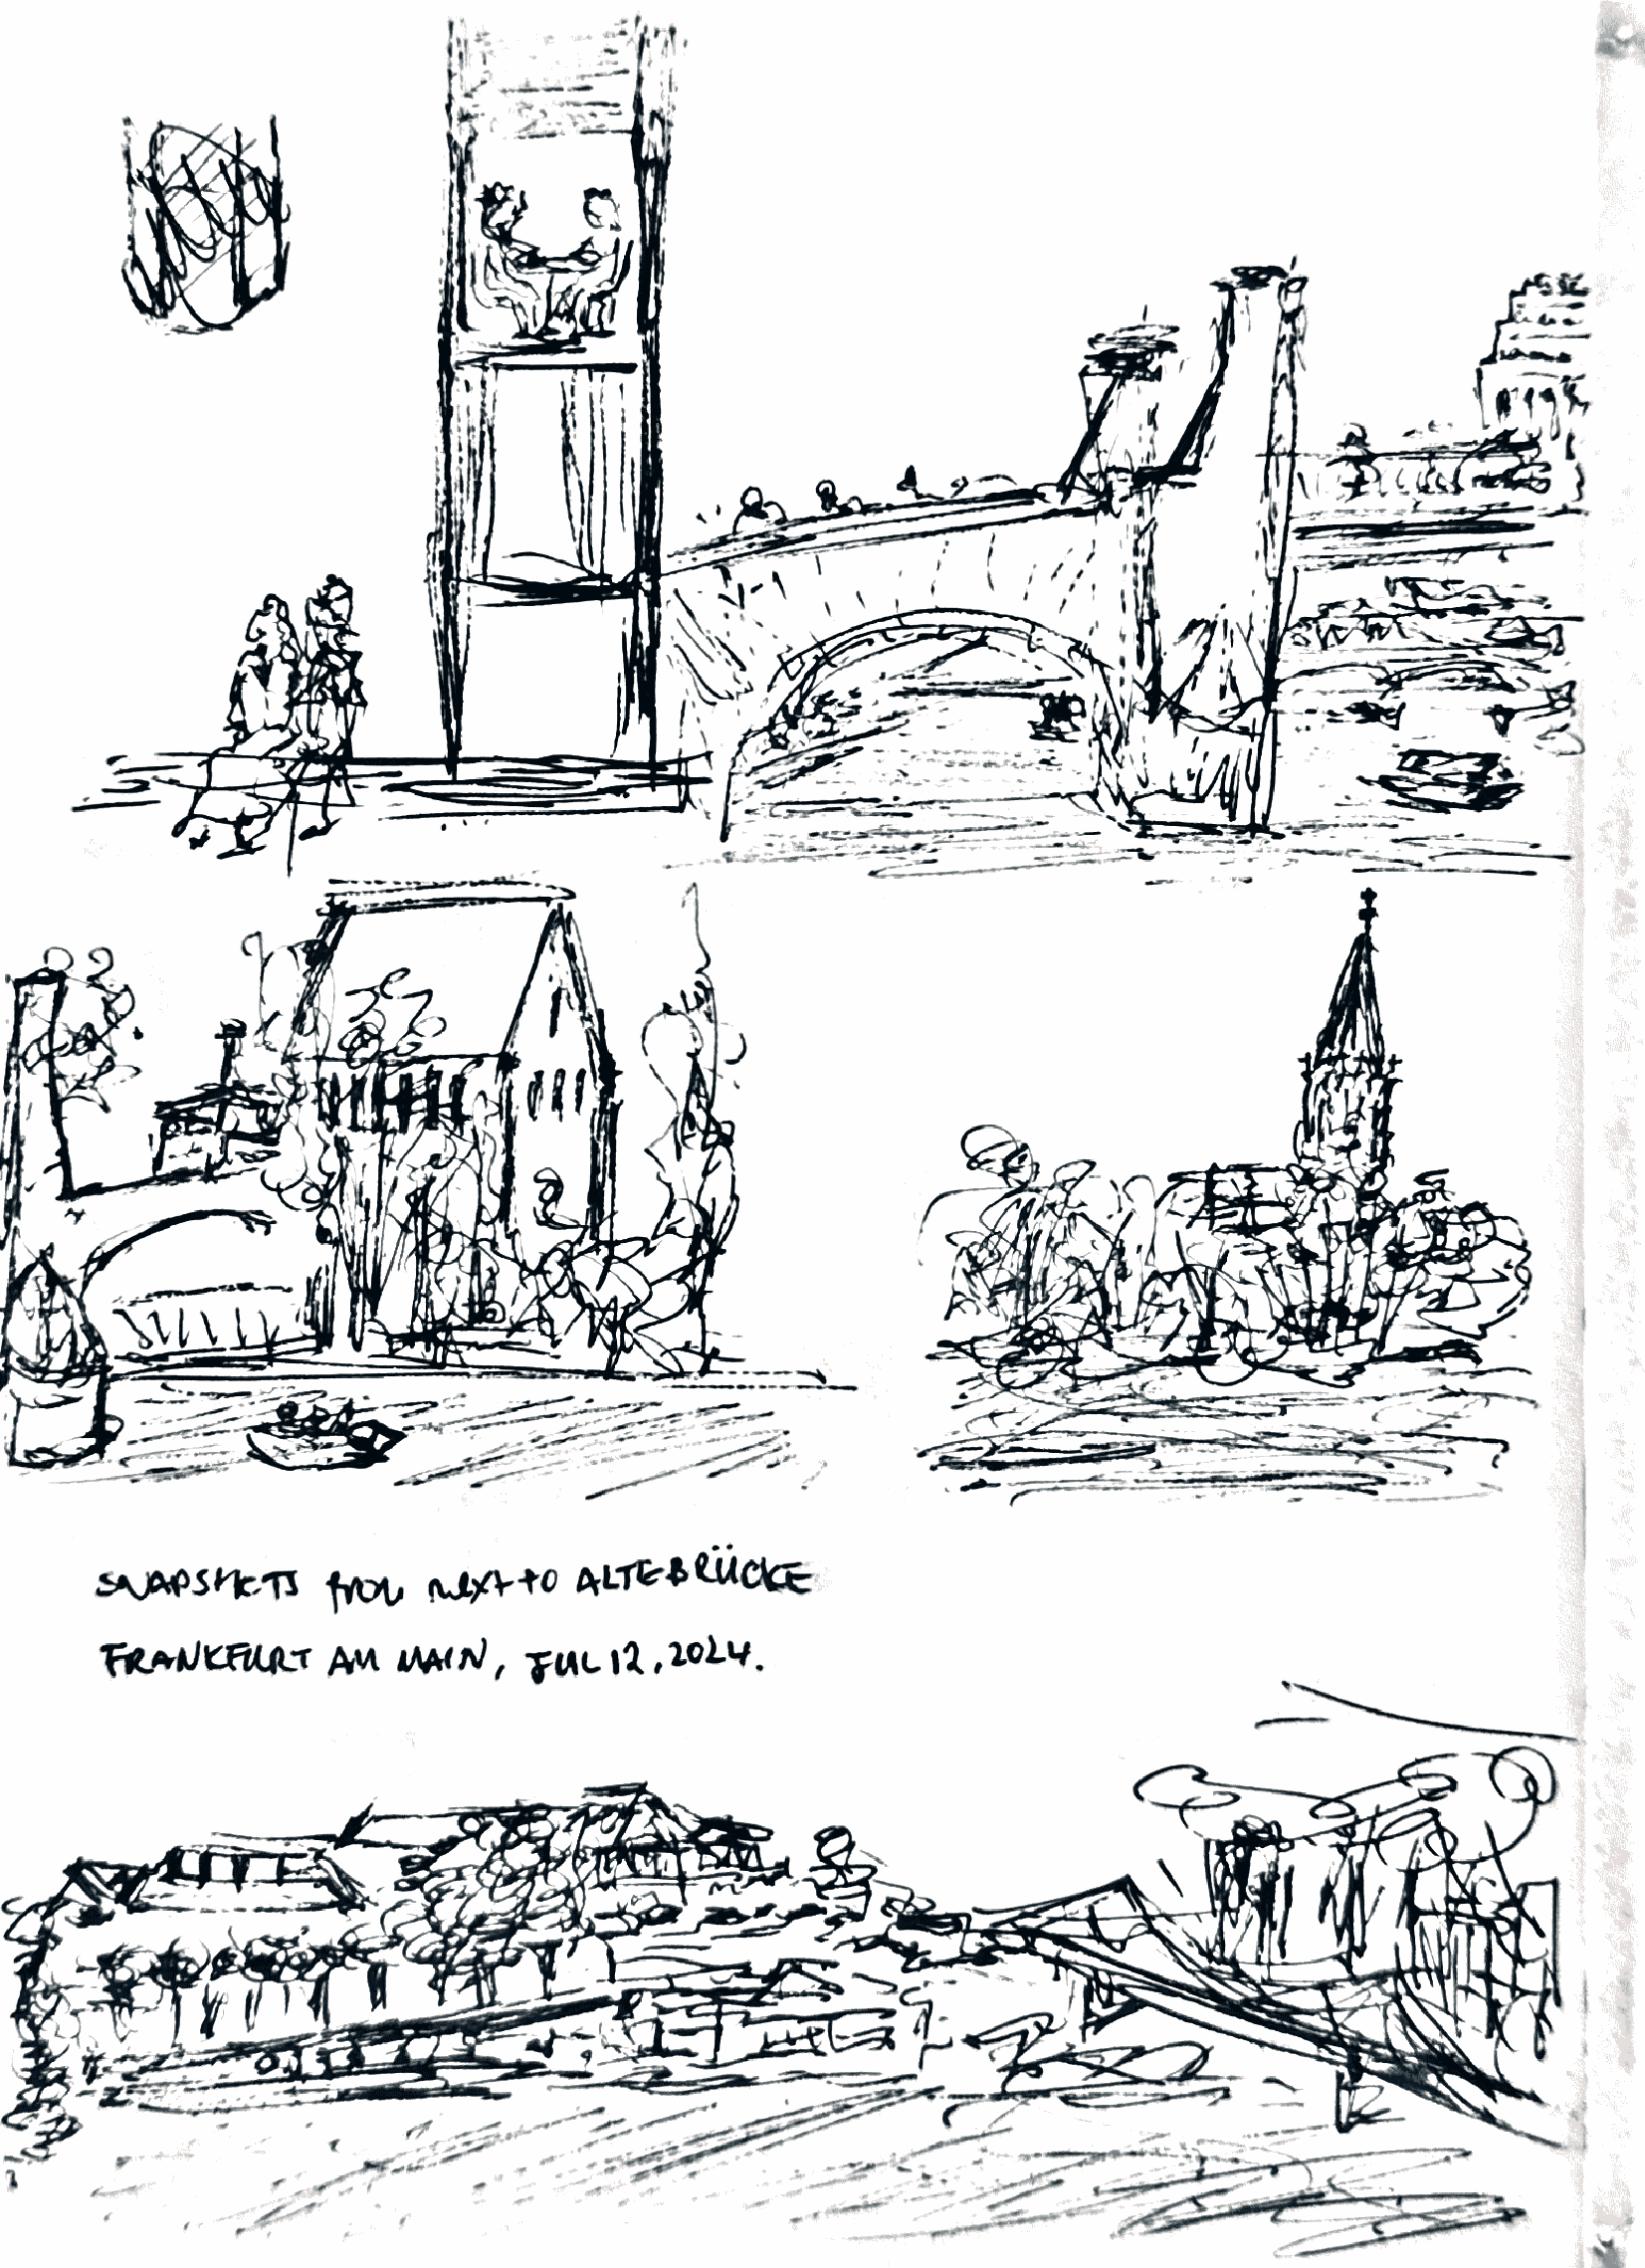 SNAPSHOTS from next to ALTEBRÜCKE
FRANKFURT AM MAIN, JUL 12, 2024.